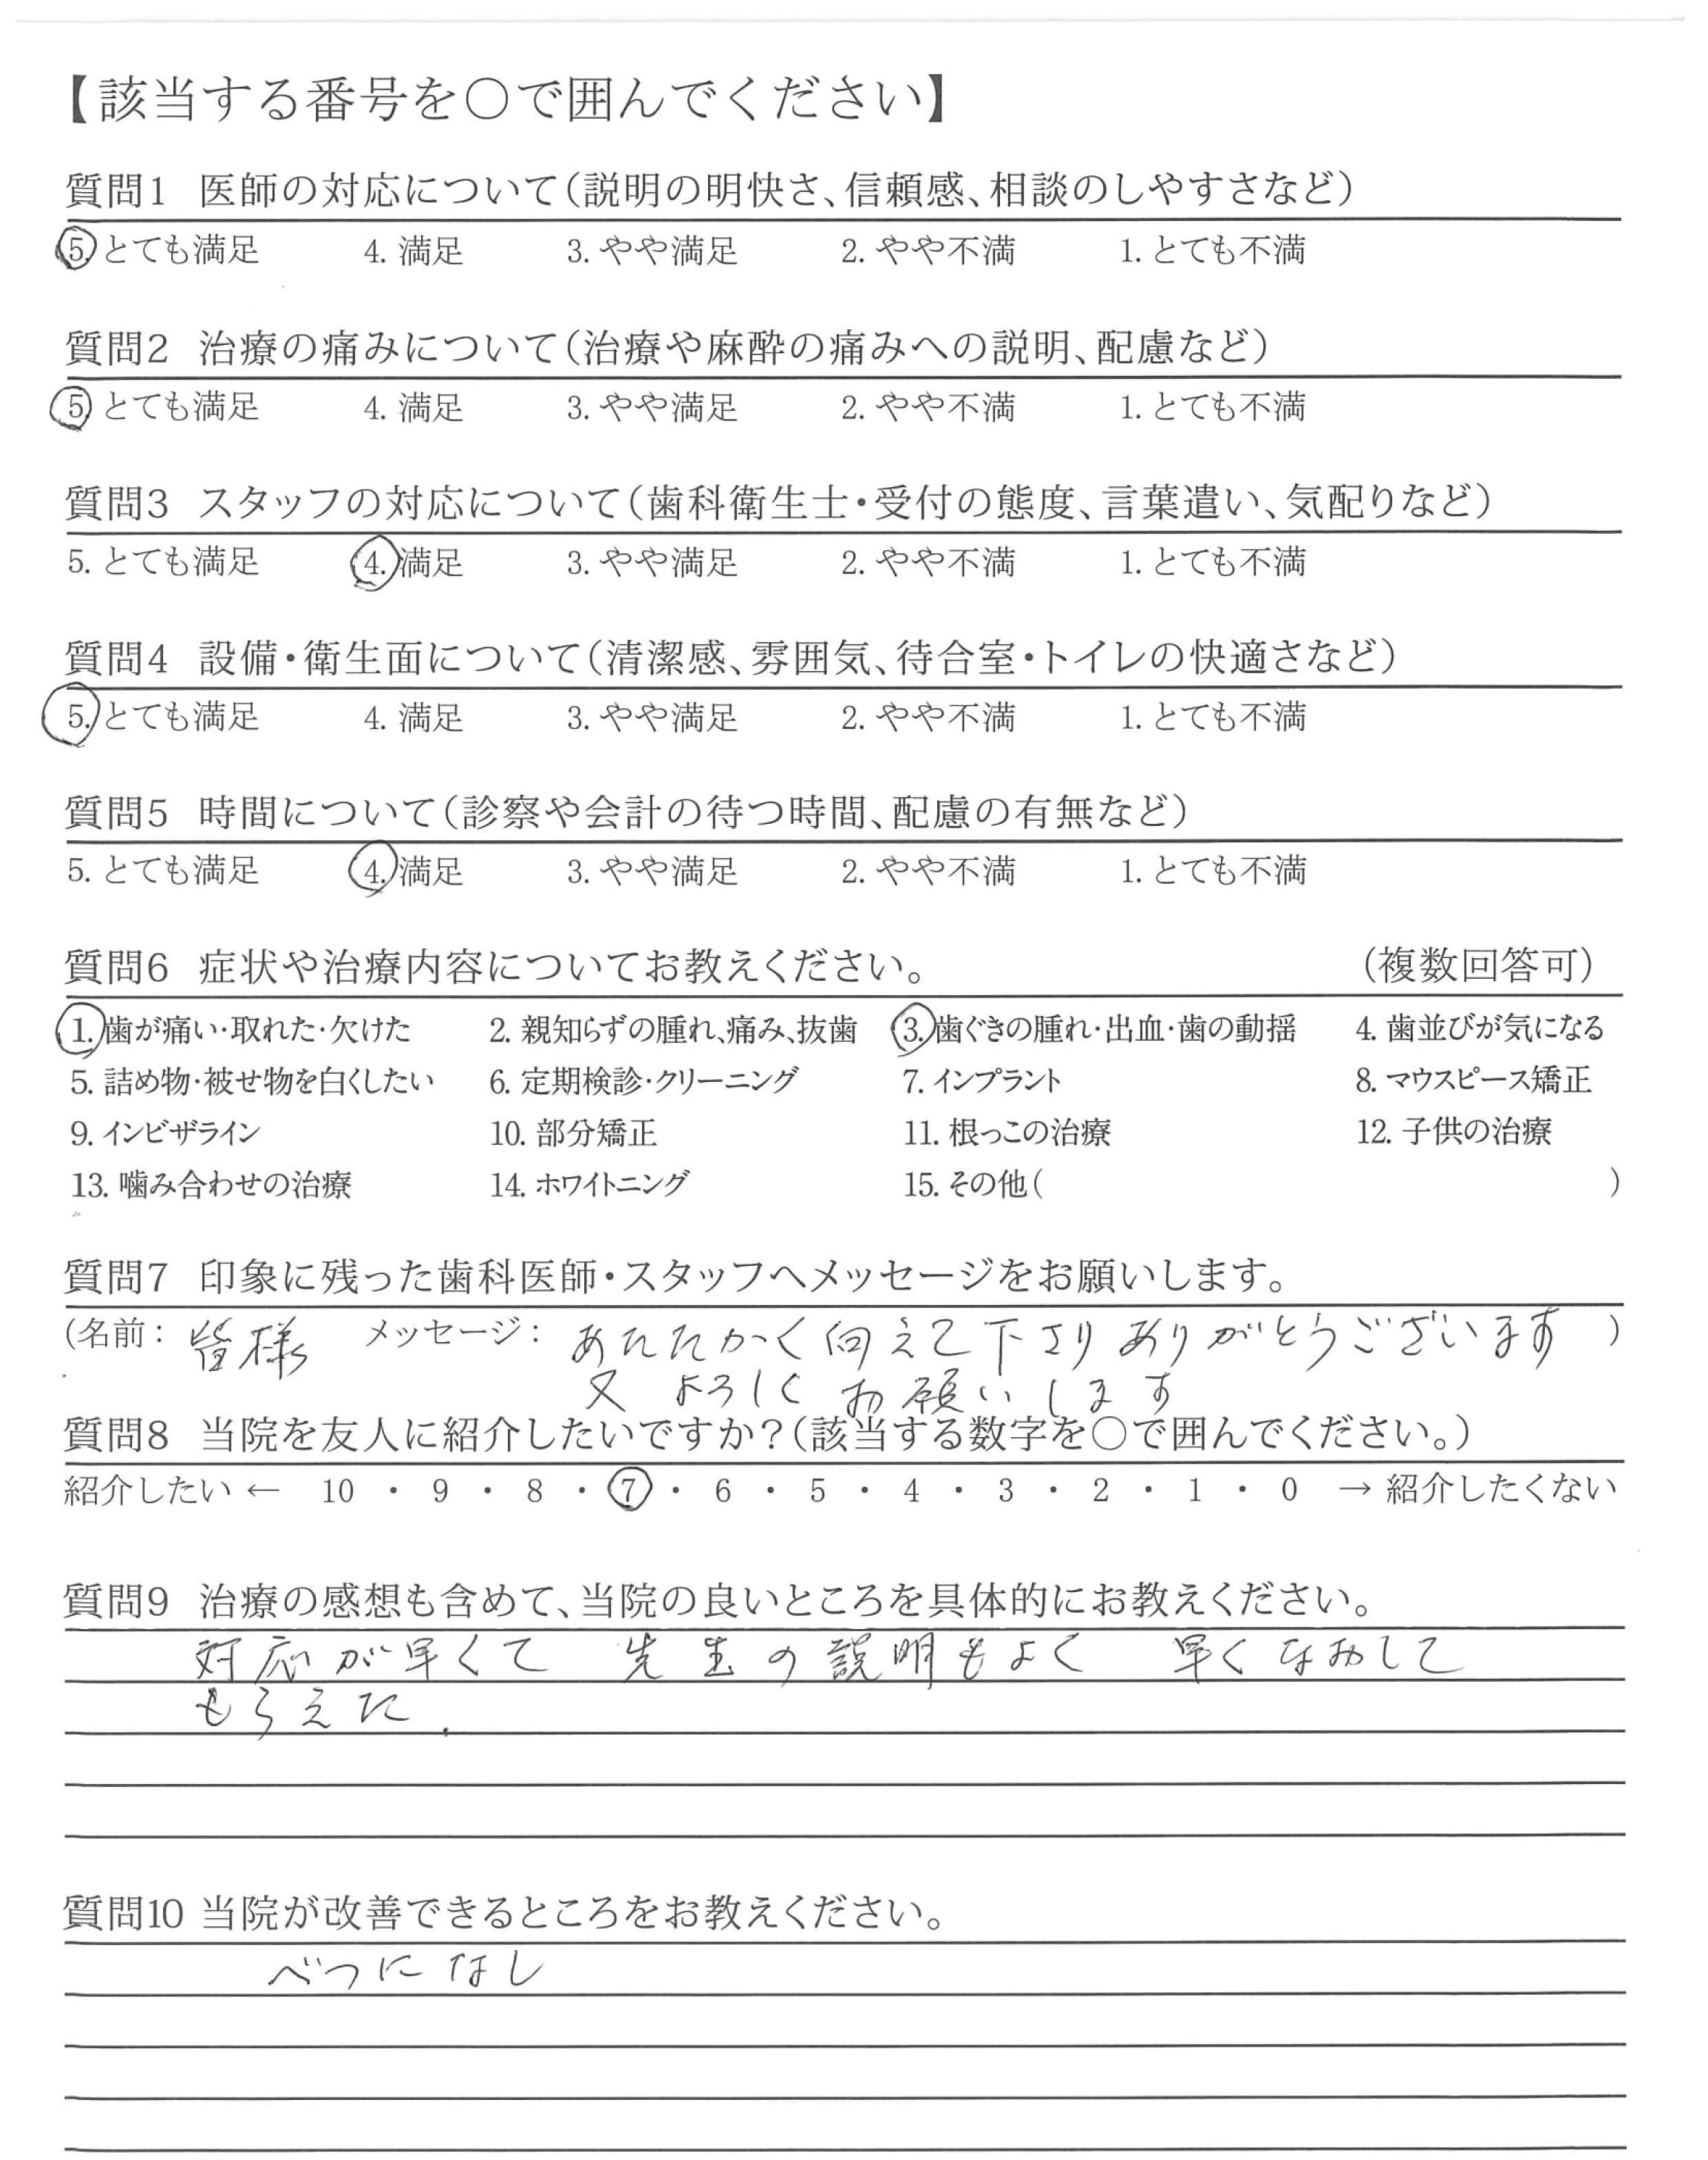 【該当する番号を○で囲んでください】
質問1 医師の対応について(説明の明快さ、信頼感、相談のしやすさなど)
5. とても満足 4. 満足 3. やや満足 2. やや不満 1. とても不満
質問2 治療の痛みについて(治療や麻酔の痛みへの説明、配慮など)
5. とても満足 4. 満足 3. やや満足 2. やや不満 1. とても不満
質問3 スタッフの対応について(歯科衛生士・受付の態度、言葉遣い、気配りなど)
5. とても満足 4. 満足 3. やや満足 2. やや不満 1. とても不満
質問4 設備・衛生面について(清潔感、雰囲気、待合室・トイレの快適さなど)
5. とても満足 4. 満足 3. やや満足 2. やや不満 1. とても不満
質問5 時間について(診察や会計の待つ時間、配慮の有無など)
5. とても満足 4. 満足 3. やや満足 2. やや不満 1. とても不満
質問6 症状や治療内容についてお教えください。 (複数回答可)
1. 歯が痛い・取れた・欠けた 2. 親知らずの腫れ、痛み、抜歯 3. 歯ぐきの腫れ・出血・歯の動揺 4. 歯並びが気になる
5. 詰め物・被せ物を白くしたい 6. 定期検診・クリーニング 7. インプラント 8. マウスピース矯正
9. インビザライン 10. 部分矯正 11. 根っこの治療 12. 子供の治療
13. 噛み合わせの治療 14. ホワイトニング 15. その他( )
質問7 印象に残った歯科医師・スタッフへメッセージをお願いします。
(名前: 皆様 メッセージ: あたたかく向えて下さりありがとうございます )
又 よろしくお願いします
質問8 当院を友人に紹介したいですか?(該当する数字を○で囲んでください。)
紹介したい ← 10 ・ 9 ・ 8 ・ 7 ・ 6 ・ 5 ・ 4 ・ 3 ・ 2 ・ 1 ・ 0 → 紹介したくない
質問9 治療の感想も含めて、当院の良いところを具体的にお教えください。
対応が早くて 先生の説明もよく 早くなおして
もらえた.
質問10 当院が改善できるところをお教えください。
べつになし